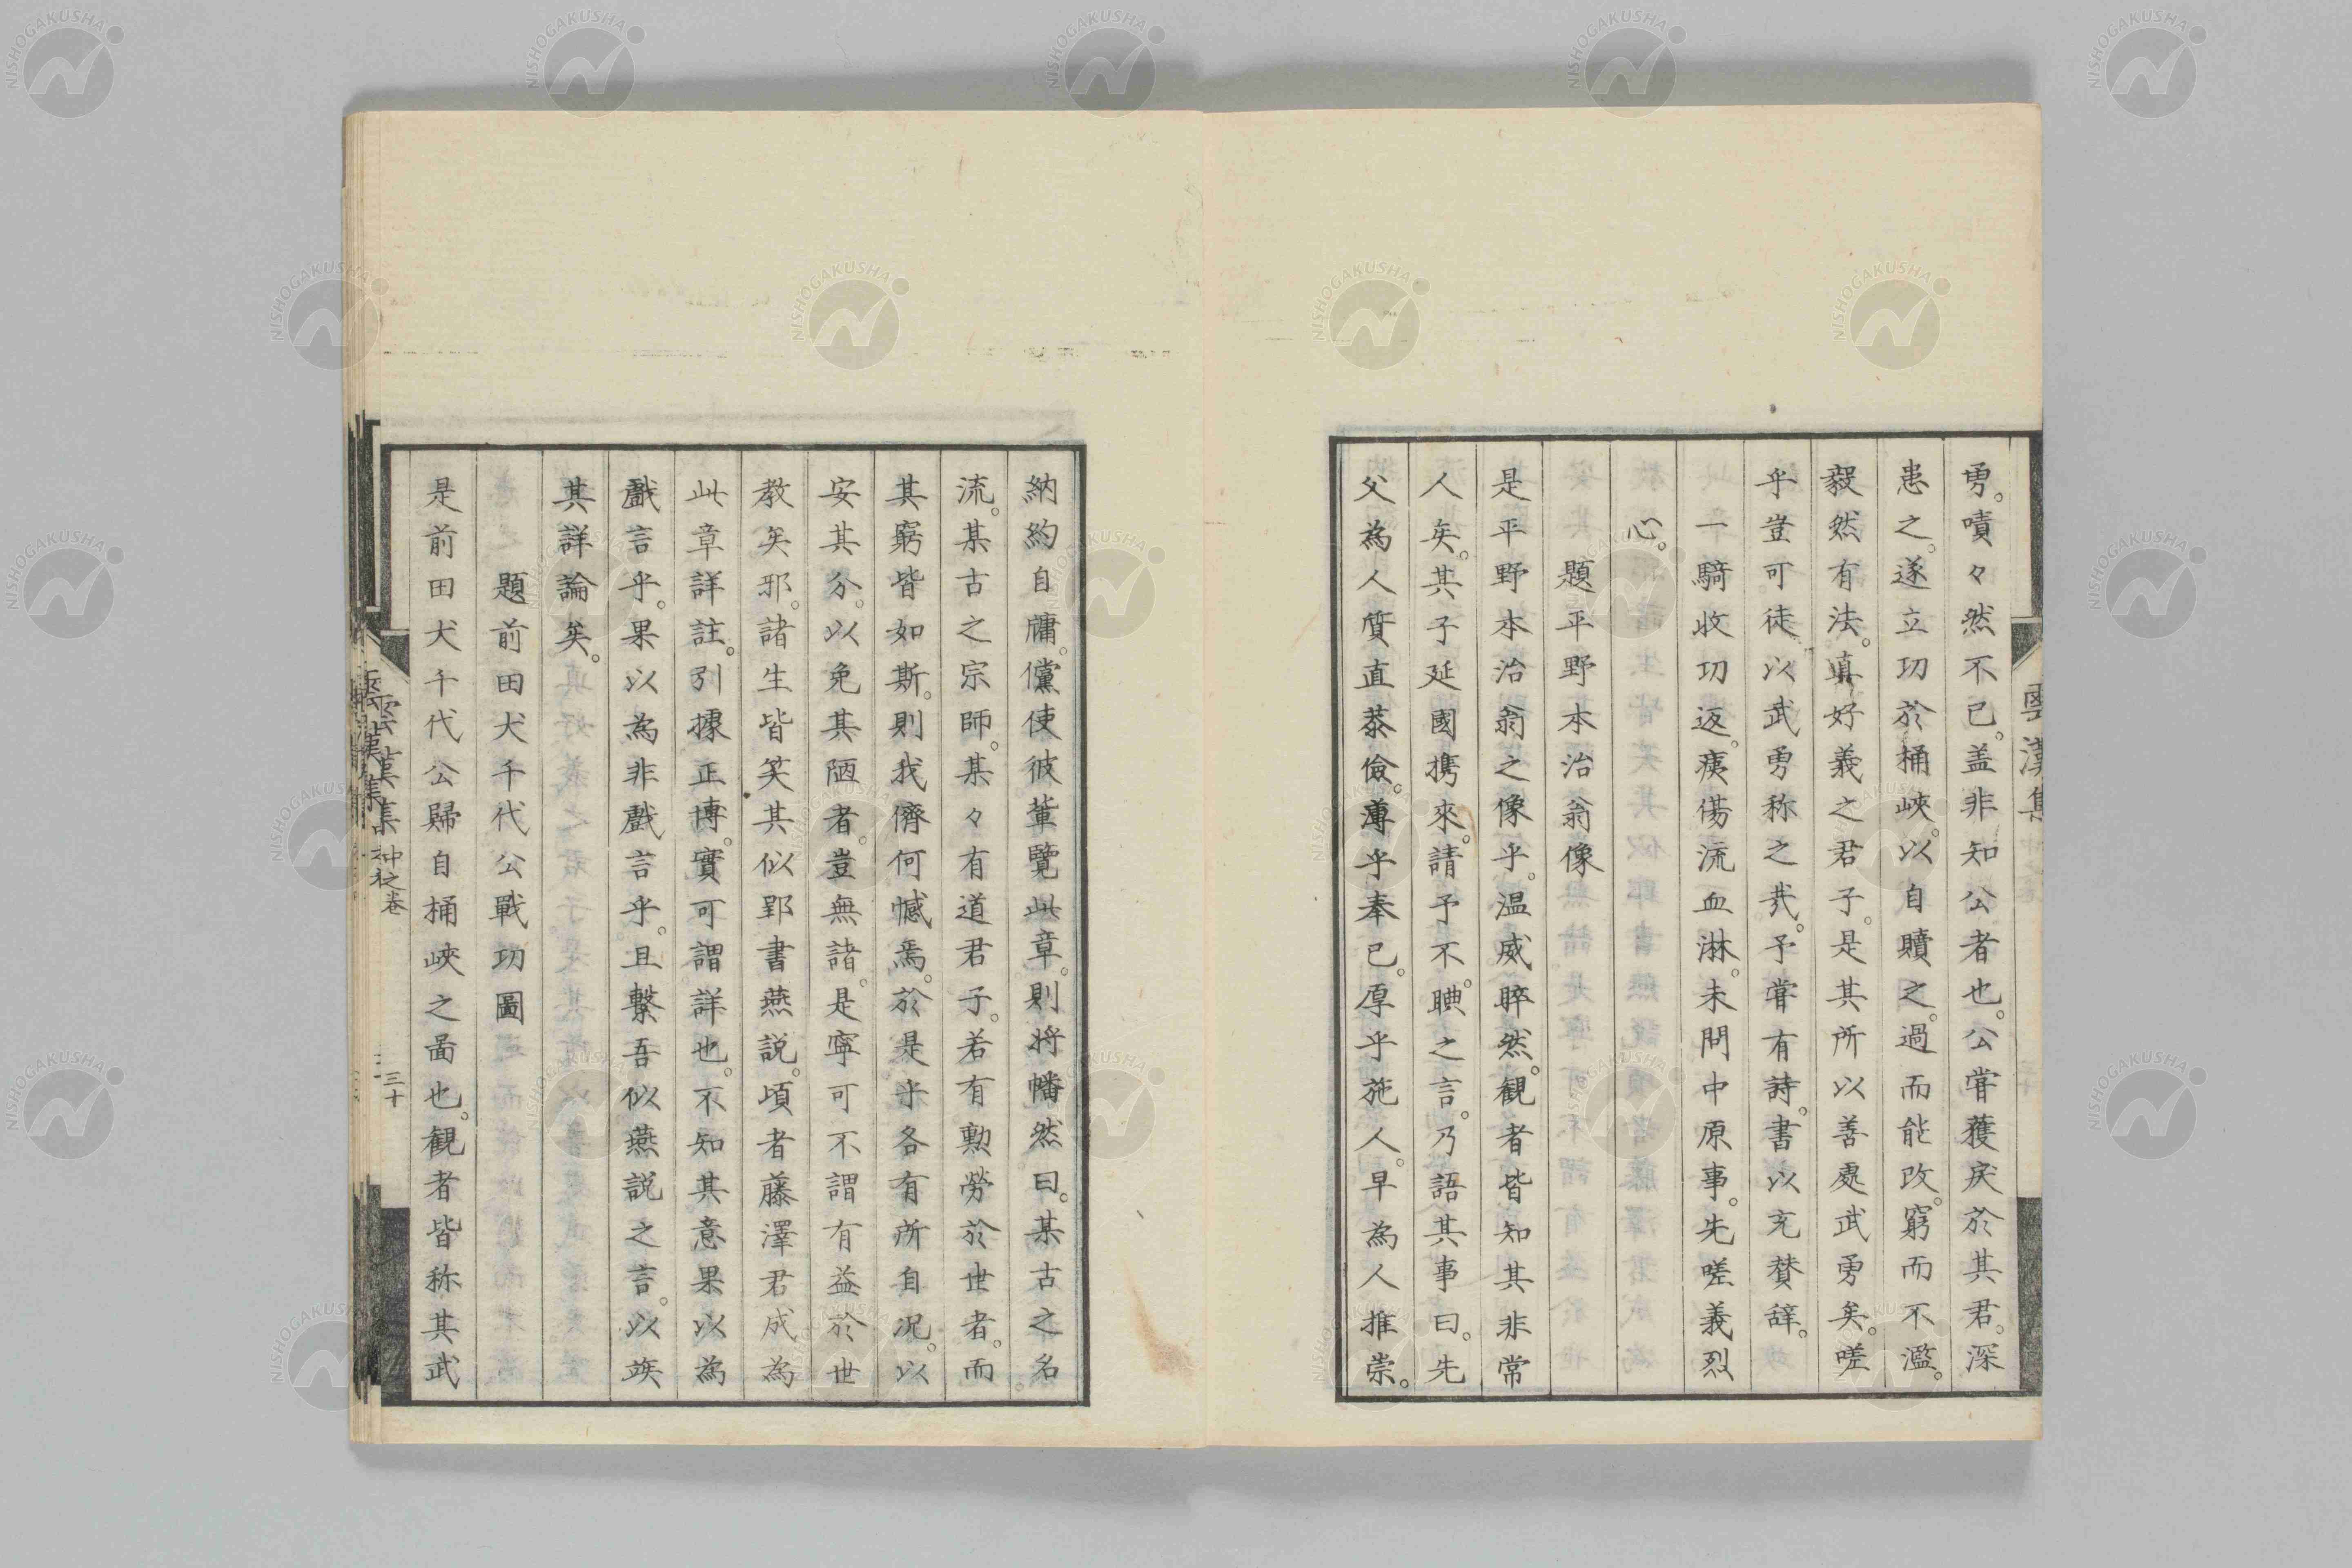 勇。嘖々然不已。盖非知公者也。公嘗獲戻於其君。深
患之。遂立功於桶峽。以自贖之。過而能改。窮而不濫。
毅然有法。真好義之君子。是其所以善處武勇矣。嗟
乎豈可徒以武勇称之㢤。予嘗有詩。書以充賛辞。
一騎收功返。痍傷流血淋。未問中原事。先嗟義烈
心。
題平野本治翁像
是平野本治翁之像乎。温威睟然。観者皆知其非常
人矣。其子延國携來。請予不腆之言。乃語其事曰。先
父為人質直恭儉。薄乎奉已。厚乎施人。早為人推崇。
雲漢集
納約自牖。儻使彼輩覽此章。則将幡然曰。某古之名
流。某古之宗師。某々有道君子。若有勲勞於世者。而
其窮皆如斯。則我儕何憾焉。於是乎各有所自况。以
安其分。以免其陋者。豈無諸。是寧可不謂有益於世
教矣邪。諸生皆笑其似郢書燕説。頃者藤澤君成為
此章詳註。引據正博。實可謂詳也。不知其意果以為
戲言乎。果以為非戲言乎。且繋吾似燕説之言。以竢
其詳論矣。
題前田犬千代公戰功圖
是前田犬千代公歸自桶峽之啚也。観者皆称其武
雲漢集
三十